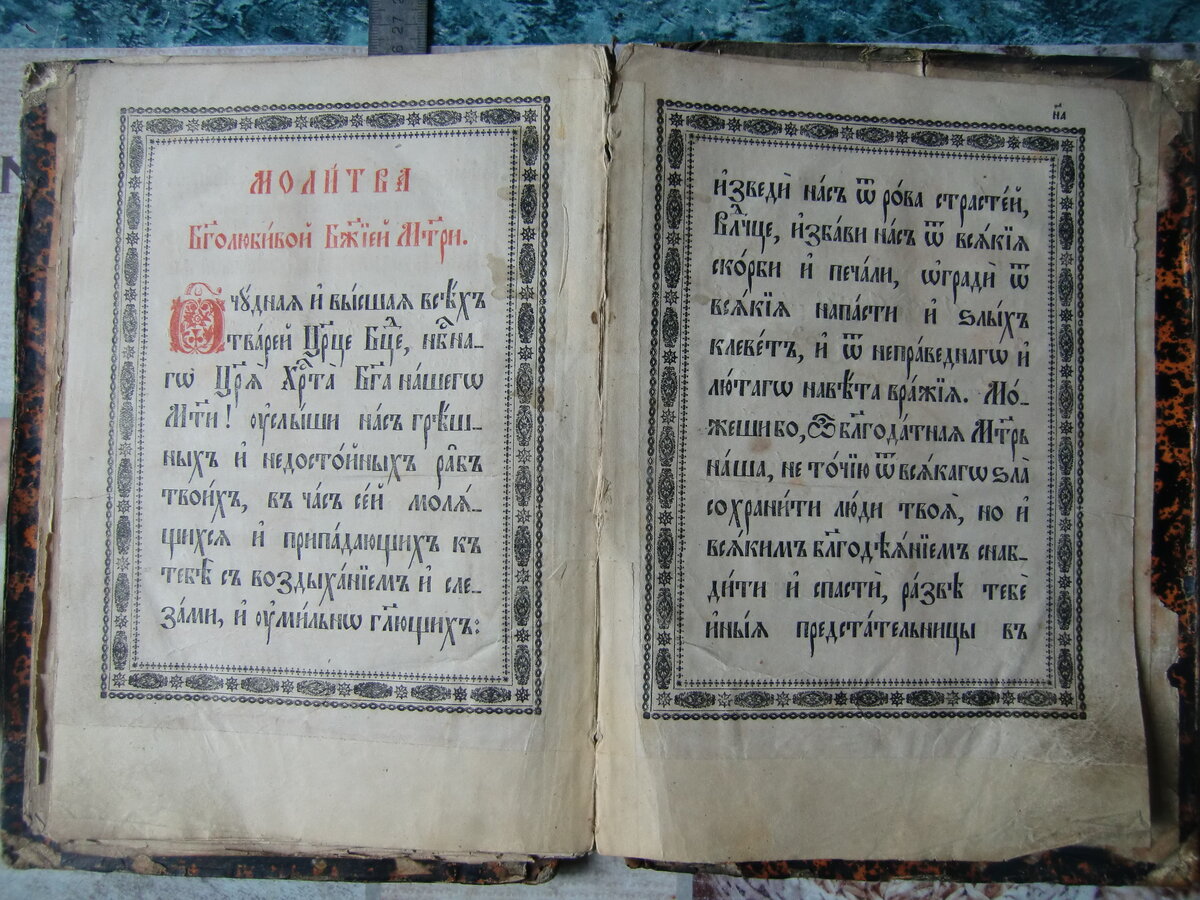 МОЛИ́ТВА
Бг҃олюби́вой Бж҃їей Мт҃ри.
Ѽ чꙋ́дная и҆ вы́сшая всѣ́хъ
тва́рей Цр҃и́це Бц҃е, нбⷭ҇на‑
гѡ Цр҃ѧ̀ Хрⷭ҇та̀ Бг҃а на́шегѡ
Мт҃и! оу҆слы́ши на́съ грѣ́ш‑
ныхъ и҆ недосто́йныхъ ра̑бъ
твои́хъ, въ ча́съ се́й молѧ́‑
щихсѧ и҆ припа́дающихъ къ
тебѣ̀ съ воздыха́нїемъ и҆ сле‑
за́ми, и҆ оу҆ми́льнѡ гл҃ющихъ:
н҃а
и҆зведѝ на́съ ѿ ро́ва страсте́й,
Влⷣчце, и҆зба́ви на́съ ѿ всѧ́кїѧ
ско́рби и҆ печа́ли, ѡ҆градѝ ѿ
всѧ́кїѧ напа́сти и҆ ѕлы́хъ
клеве́тъ, и҆ ѿ непра́веднагѡ и҆
лю́тагѡ навѣ́та вра́жїѧ. Мо́‑
жеши бо, ѽ блг҃ода́тнаѧ Мт҃рь
на́ша, не то́чїю ѿ всѧ́кагѡ ѕла̀
сохрани́ти лю́ди твоѧ̑, но и҆
всѧ́кимъ блг҃одѣѧ́нїемъ снаб‑
ди́ти и҆ спастѝ, ра́звѣ тебє̀
и҆ны́ѧ предста́тельницы въ